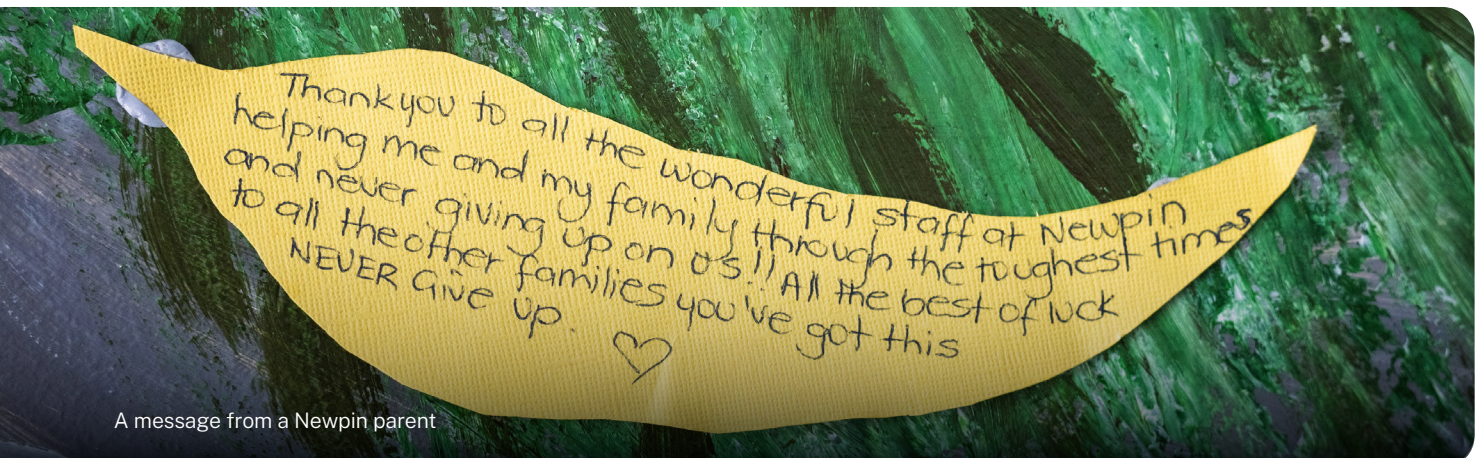 Thankyou to all the wonderful staff at Newpin
helping me and my family through the toughest times
and never giving up on us!! All the best of luck
to all the other families you've got this
NEVER Give up. ♡
A message from a Newpin parent